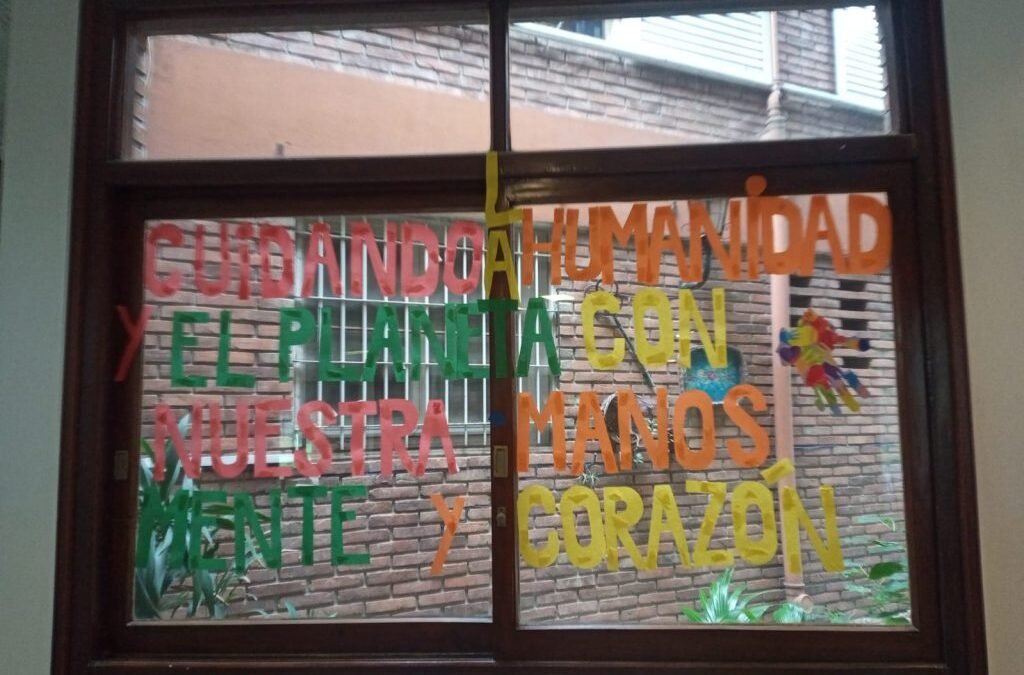 CUIDANDO LA HUMANIDAD
Y EL PLANETA CON
NUESTRA MANOS
MENTE Y CORAZÓN